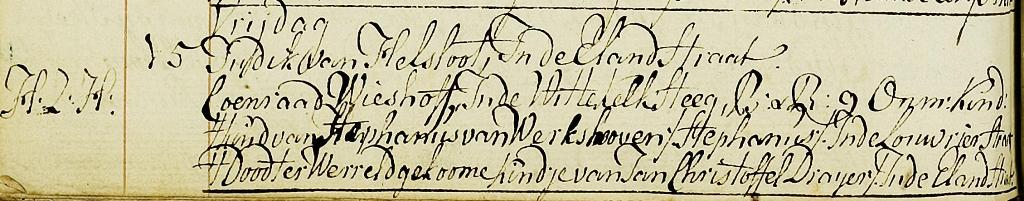 Vrijdag
15 Dirdik van Helsloot, In de Eland Straat
H. 2. H. Coenraad Wieshoff, In de Wittekelk Steeg, R: & R: 9 Onm: Kind:
't Kind van Stephanus van Werkshoven / Stephanus / In de Louwrier Straat
't Dood ter Werreld gekoome kindje van Jan Christoffel Drayer / In de Eland Str: